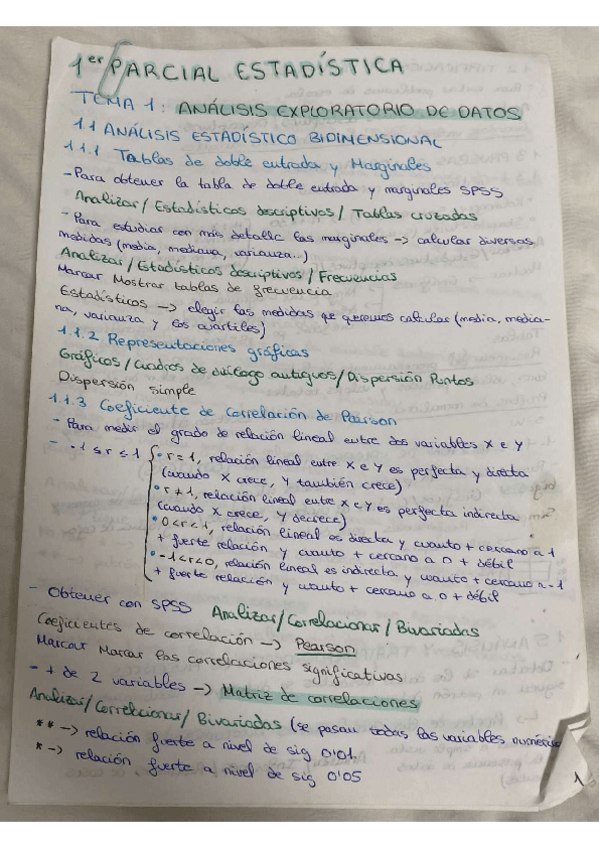 1er PARCIAL ESTADÍSTICA
TEMA 1: ANÁLISIS EXPLORATORIO DE DATOS
1.1 ANÁLISIS ESTADÍSTICO BIDIMENSIONAL
1.1.1 Tablas de doble entrada y Marginales
-Para obtener la tabla de doble entrada y marginales SPSS
Analizar/Estadísticos descriptivos/Tablas cruzadas
- Para estudiar con más detalle las marginales -> calcular diversas
medidas (media, mediana, varianza...)
Analizar/Estadísticos descriptivos/Frecuencias
Marcar Mostrar tablas de frecuencia
Estadísticos -> elegir las medidas que queremos calcular (media, media-
na, varianza y los cuartiles)
1.1.2 Representaciones gráficas
Gráficos/Cuadros de diálogo antiguos/Dispersión Puntos
Dispersión simple
1.1.3 Coeficiente de correlación de Pearson
- Para medir el grado de relación lineal entre dos variables X e Y
- -1 ≤ r ≤ 1 { • r = 1, relación lineal entre X e Y es perfecta y directa
(cuando X crece, Y también crece)
• r ≠ 1, relación lineal entre X e Y es perfecta indirecta
(cuando X crece, Y decrece)
• 0 < r < 1, relación lineal es directa y cuanto + cercano a 1
+ fuerte relación y cuanto + cercano a 0 + débil
• -1 < r < 0, relación lineal es indirecta y cuanto + cercano a -1
+ fuerte relación y cuanto + cercano a 0 + débil
- Obtener con SPSS Analizar/Correlacionar/Bivariadas
Coeficientes de correlación -> Pearson
Marcar Marcar las correlaciones significativas
- + de 2 variables -> Matriz de correlaciones
Analizar/Correlacionar/Bivariadas (se pasan todas las variables
** -> relación fuerte a nivel de sig 0'01
* -> relación fuerte a nivel de sig 0'05
1